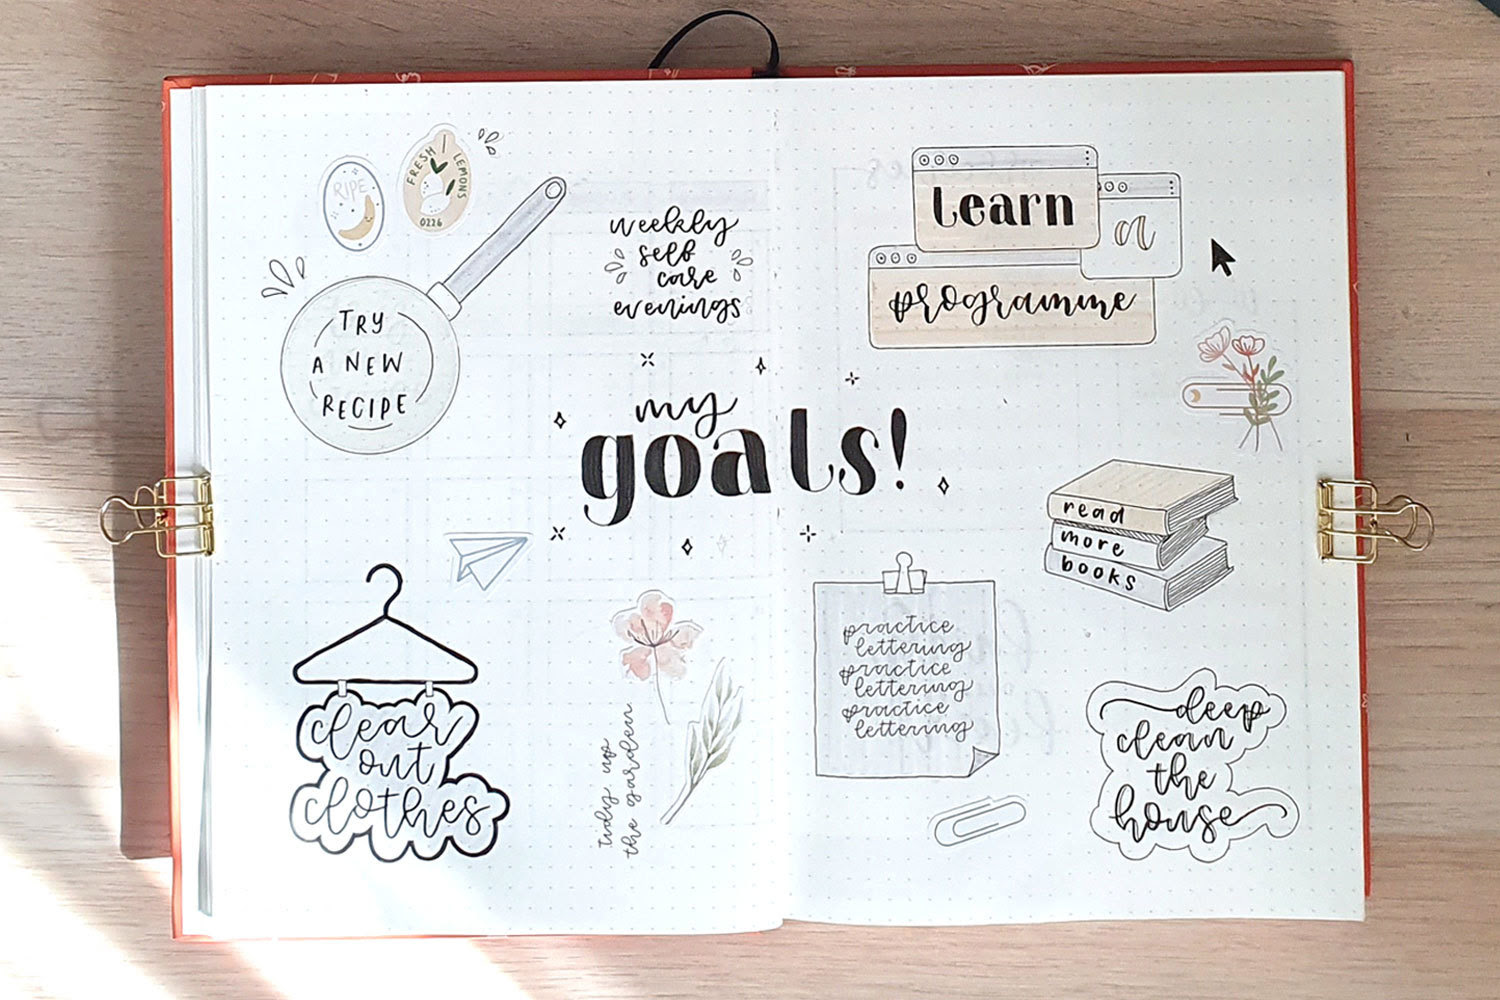 RIPE
FRESH LEMONS
0226
TRY
A NEW
RECIPE
weekly
self
care
evenings
my
goals!
clear
out
clothes
tidy up
the garden
learn
a
programme
read
more
books
practice
lettering
practice
lettering
practice
lettering
deep
clean
the
house